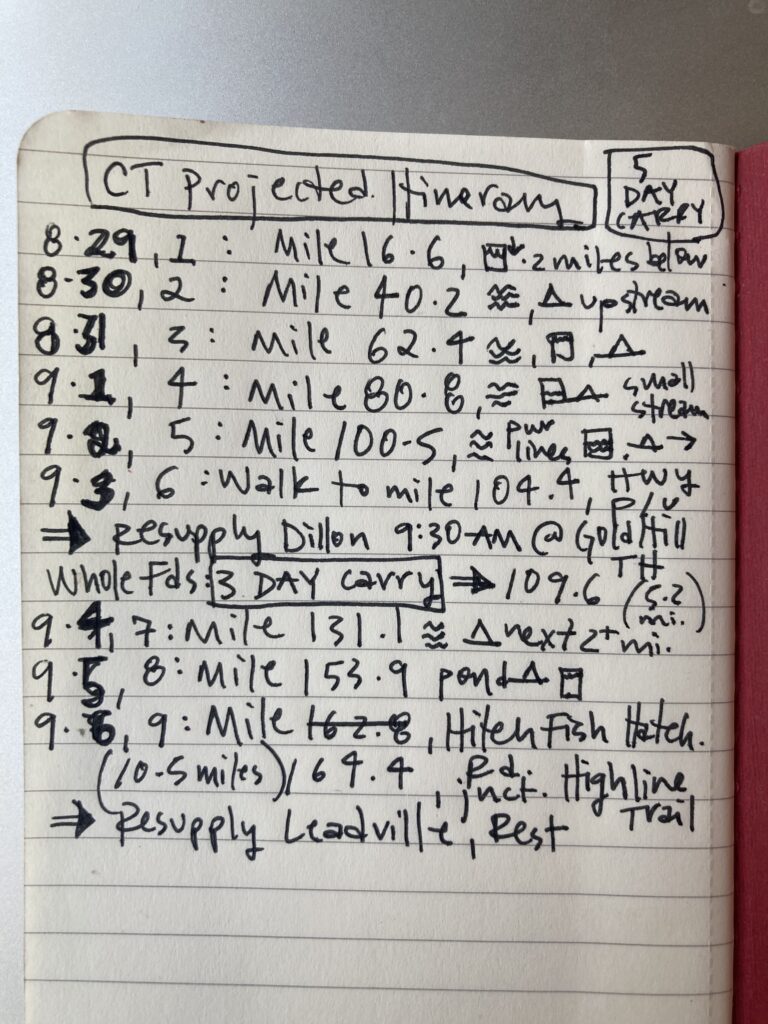 CT Projected Itinerary
5
DAY
CARRY
8.29, 1: Mile 16.6, .2 miles below
8.30, 2: Mile 40.2, upstream
8.31, 3: Mile 62.4
9.1, 4: Mile 80.8, small
stream
9.2, 5: Mile 100.5, pwr
lines
9.3, 6: Walk to mile 104.4, HWY
P/U
⇒ Resupply Dillon 9:30 AM @ Gold Hill
TH
Whole Fds: 3 DAY carry ⇒ 109.6 (5.2
mi.)
9.4, 7: Mile 131.1 ≋ △ next 2+ mi.
9.5, 8: Mile 153.9 pond △
9.6, 9: Mile 162.8, Hitch Fish Hatch.
(10.5 miles) 164.4, Rd.
junct. Highline
Trail
⇒ Resupply Leadville, Rest